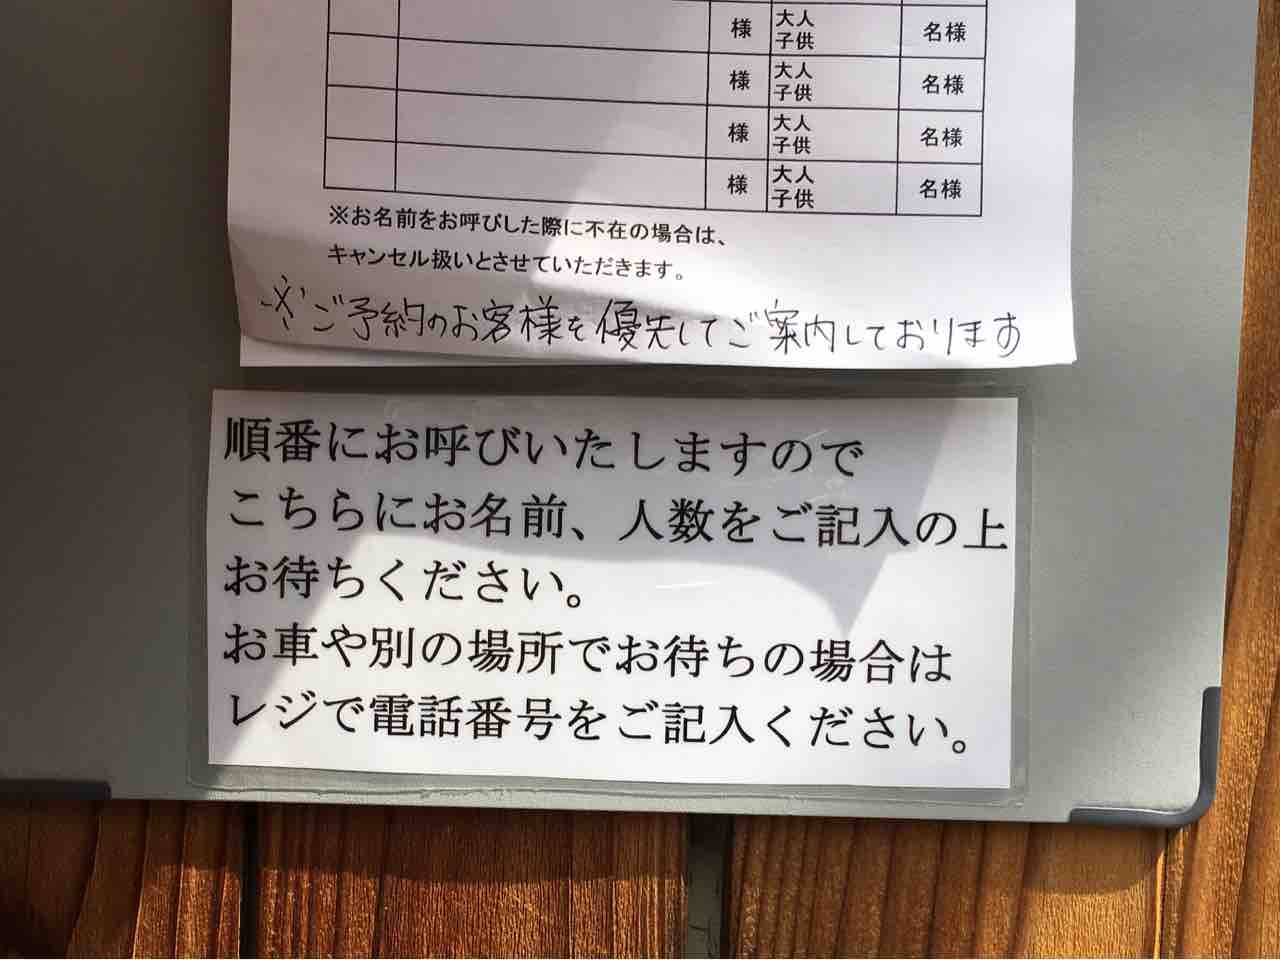 様 大人 名様
子供
様 大人 名様
子供
様 大人 名様
子供
様 大人 名様
子供
※お名前をお呼びした際に不在の場合は、
キャンセル扱いとさせていただきます。
※ご予約のお客様を優先してご案内しております
順番にお呼びいたしますので
こちらにお名前、人数をご記入の上
お待ちください。
お車や別の場所でお待ちの場合は
レジで電話番号をご記入ください。